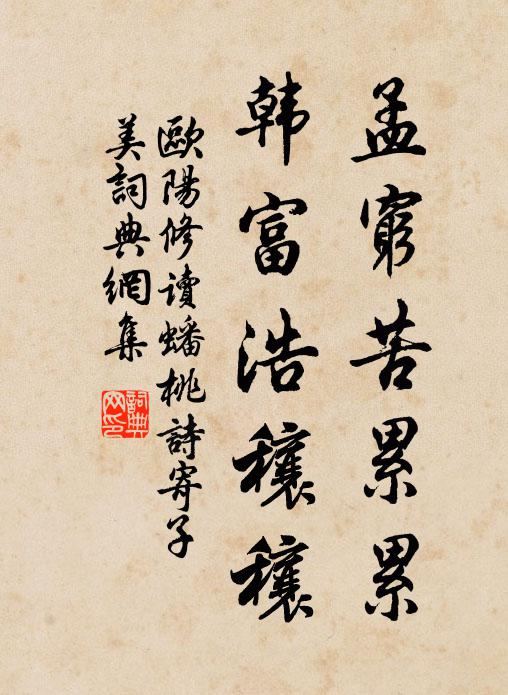 孟窮苦累累
韩富浩穰穰
歐陽修读蟠桃詩寄子
美詞典網集
詞典网印